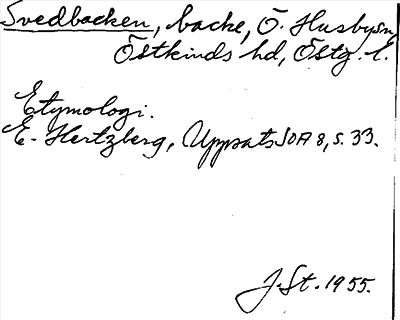 Svedbacken, backe, Ö. Husbysn,
Östkinds hd, Östg. l.
Etymologi.
E. Hertzberg, Uppsats SOÄ 8, s. 33.
J. St. 1955.